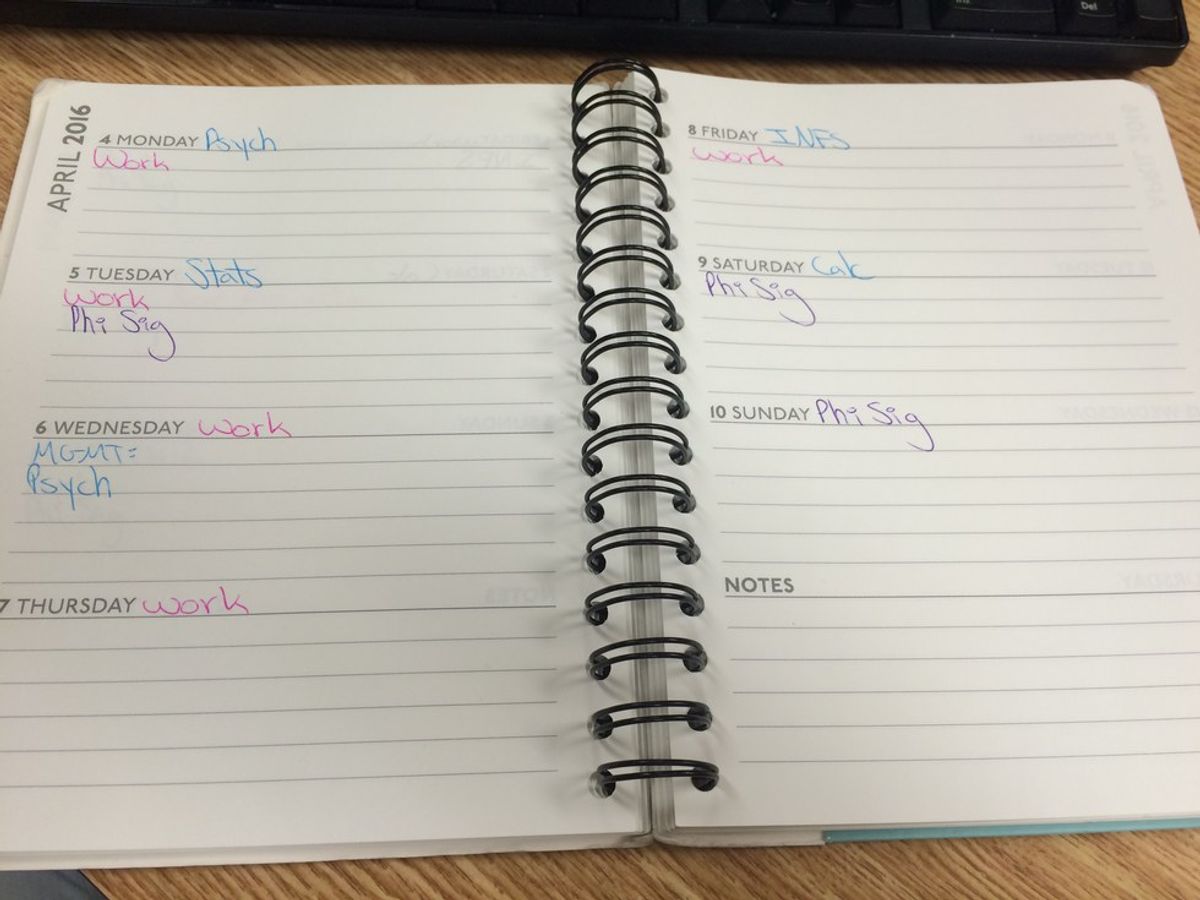 APRIL 2016
4 MONDAY Psych
Work
5 TUESDAY Stats
work
Phi Sig
6 WEDNESDAY work
MGMT:
Psych
7 THURSDAY work
8 FRIDAY INFS
work
9 SATURDAY Calc
Phi Sig
10 SUNDAY Phi Sig
NOTES
Del